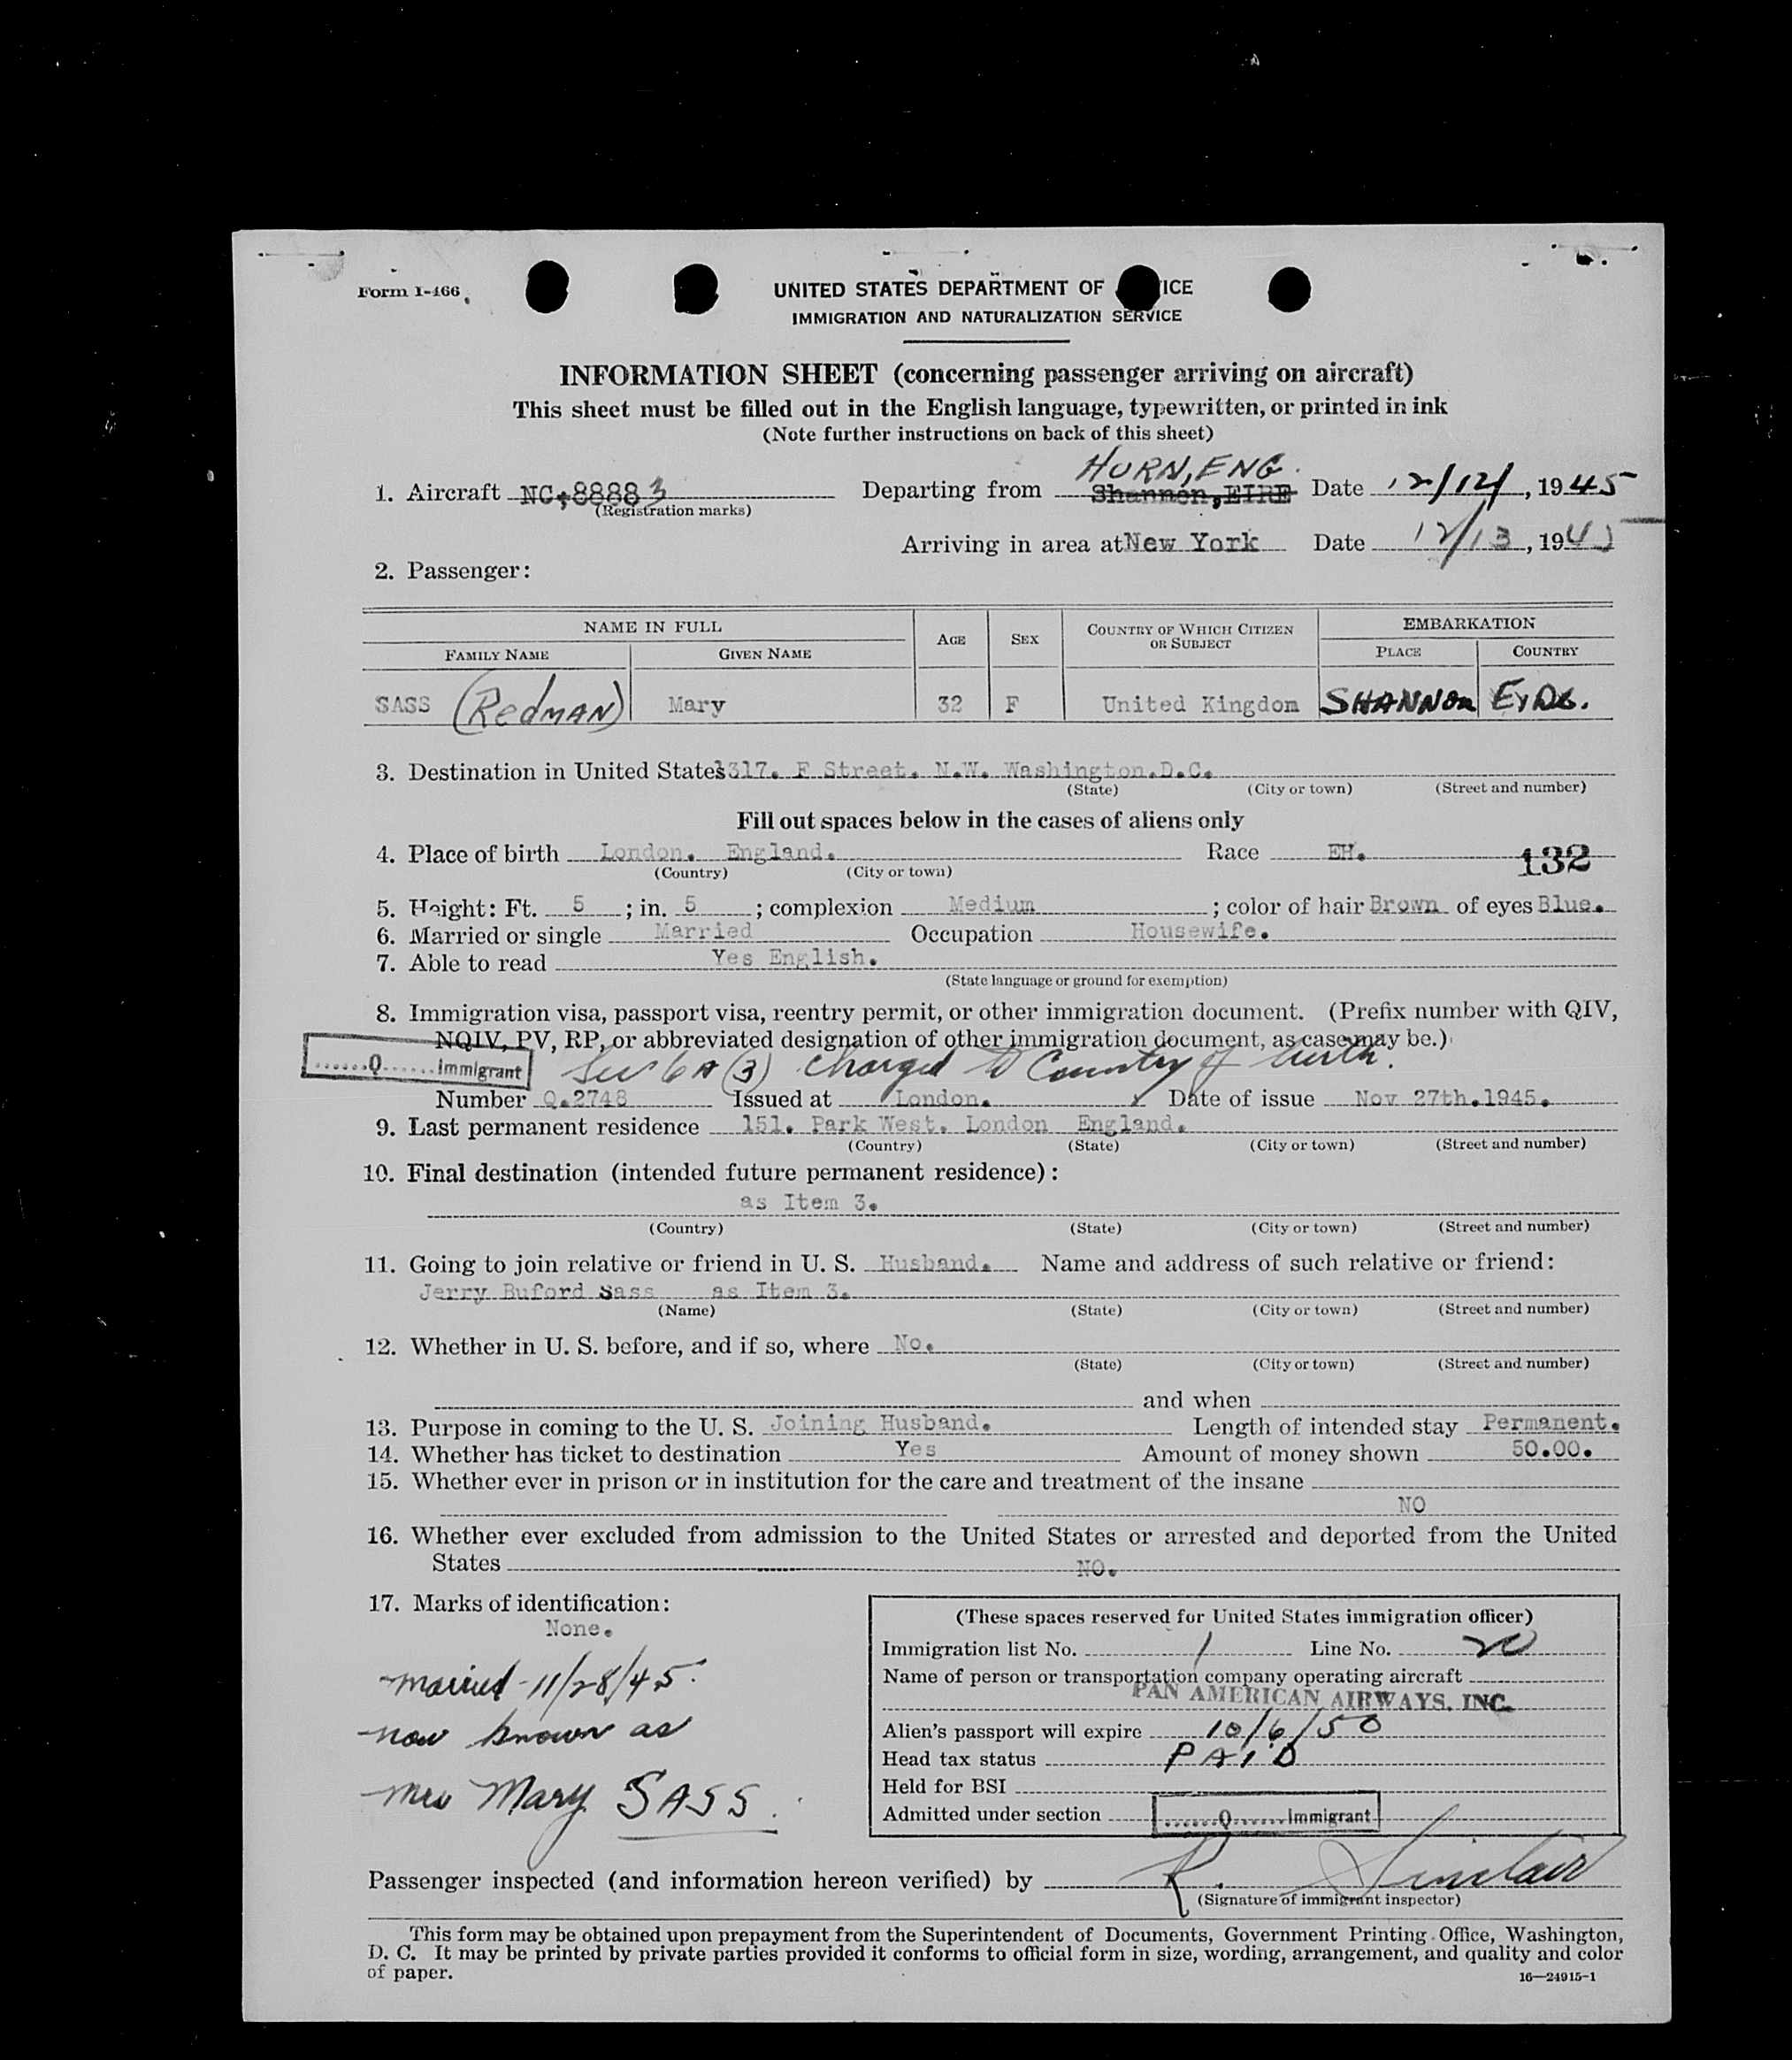 Form I-466
UNITED STATES DEPARTMENT OF ICE
IMMIGRATION AND NATURALIZATION SERVICE
INFORMATION SHEET (concerning passenger arriving on aircraft)
This sheet must be filled out in the English language, typewritten, or printed in ink
(Note further instructions on back of this sheet)
HURN, ENG.
1. Aircraft NC-88883 Departing from Shannon, EIRE Date 12/12/, 1945
(Registration marks)
Arriving in area at New York Date 12/13, 194
2. Passenger:
NAME IN FULL AGE SEX COUNTRY OF WHICH CITIZEN OR SUBJECT EMBARKATION
FAMILY NAME GIVEN NAME PLACE COUNTRY
SASS (Redman) Mary 32 F United Kingdom SHANNON
3. Destination in United States 1317. F Street. N.W. Washington.D.C.
(State) (City or town) (Street and number)
Fill out spaces below in the cases of aliens only
4. Place of birth London. England. Race EH. 132
(Country) (City or town)
5. Height: Ft. 5 ; in. 5 ; complexion Medium ; color of hair Brown of eyes Blue.
6. Married or single Married Occupation Housewife.
7. Able to read Yes English.
(State language or ground for exemption)
8. Immigration visa, passport visa, reentry permit, or other immigration document. (Prefix number with QIV,
NQIV, PV, RP, or abbreviated designation of other immigration document, as case may be.)
......Q......Immigrant Sec 6A (3) charged to Country of birth.
Number Q.2748 Issued at London. Date of issue Nov 27th.1945.
9. Last permanent residence 151. Park West. London England.
(Country) (State) (City or town) (Street and number)
10. Final destination (intended future permanent residence):
as Item 3.
(Country) (State) (City or town) (Street and number)
11. Going to join relative or friend in U. S. Husband. Name and address of such relative or friend:
Jerry Buford Sass as Item 3.
(Name) (State) (City or town) (Street and number)
12. Whether in U. S. before, and if so, where No.
(State) (City or town) (Street and number)
and when
13. Purpose in coming to the U. S. Joining Husband. Length of intended stay Permanent.
14. Whether has ticket to destination Yes Amount of money shown 50.00.
15. Whether ever in prison or in institution for the care and treatment of the insane
NO
16. Whether ever excluded from admission to the United States or arrested and deported from the United
States NO.
17. Marks of identification:
None.
married - 11/28/45.
now known as
Mrs Mary SASS.
(These spaces reserved for United States immigration officer)
Immigration list No. 1 Line No. 20
Name of person or transportation company operating aircraft
PAN AMERICAN AIRWAYS, INC.
Alien's passport will expire 10/6/50
Head tax status PAID
Held for BSI
Admitted under section ......Q......Immigrant
Passenger inspected (and information hereon verified) by R. Sinclair
(Signature of immigrant inspector)
This form may be obtained upon prepayment from the Superintendent of Documents, Government Printing Office, Washington,
D. C. It may be printed by private parties provided it conforms to official form in size, wording, arrangement, and quality and color
of paper.
16—24915-1